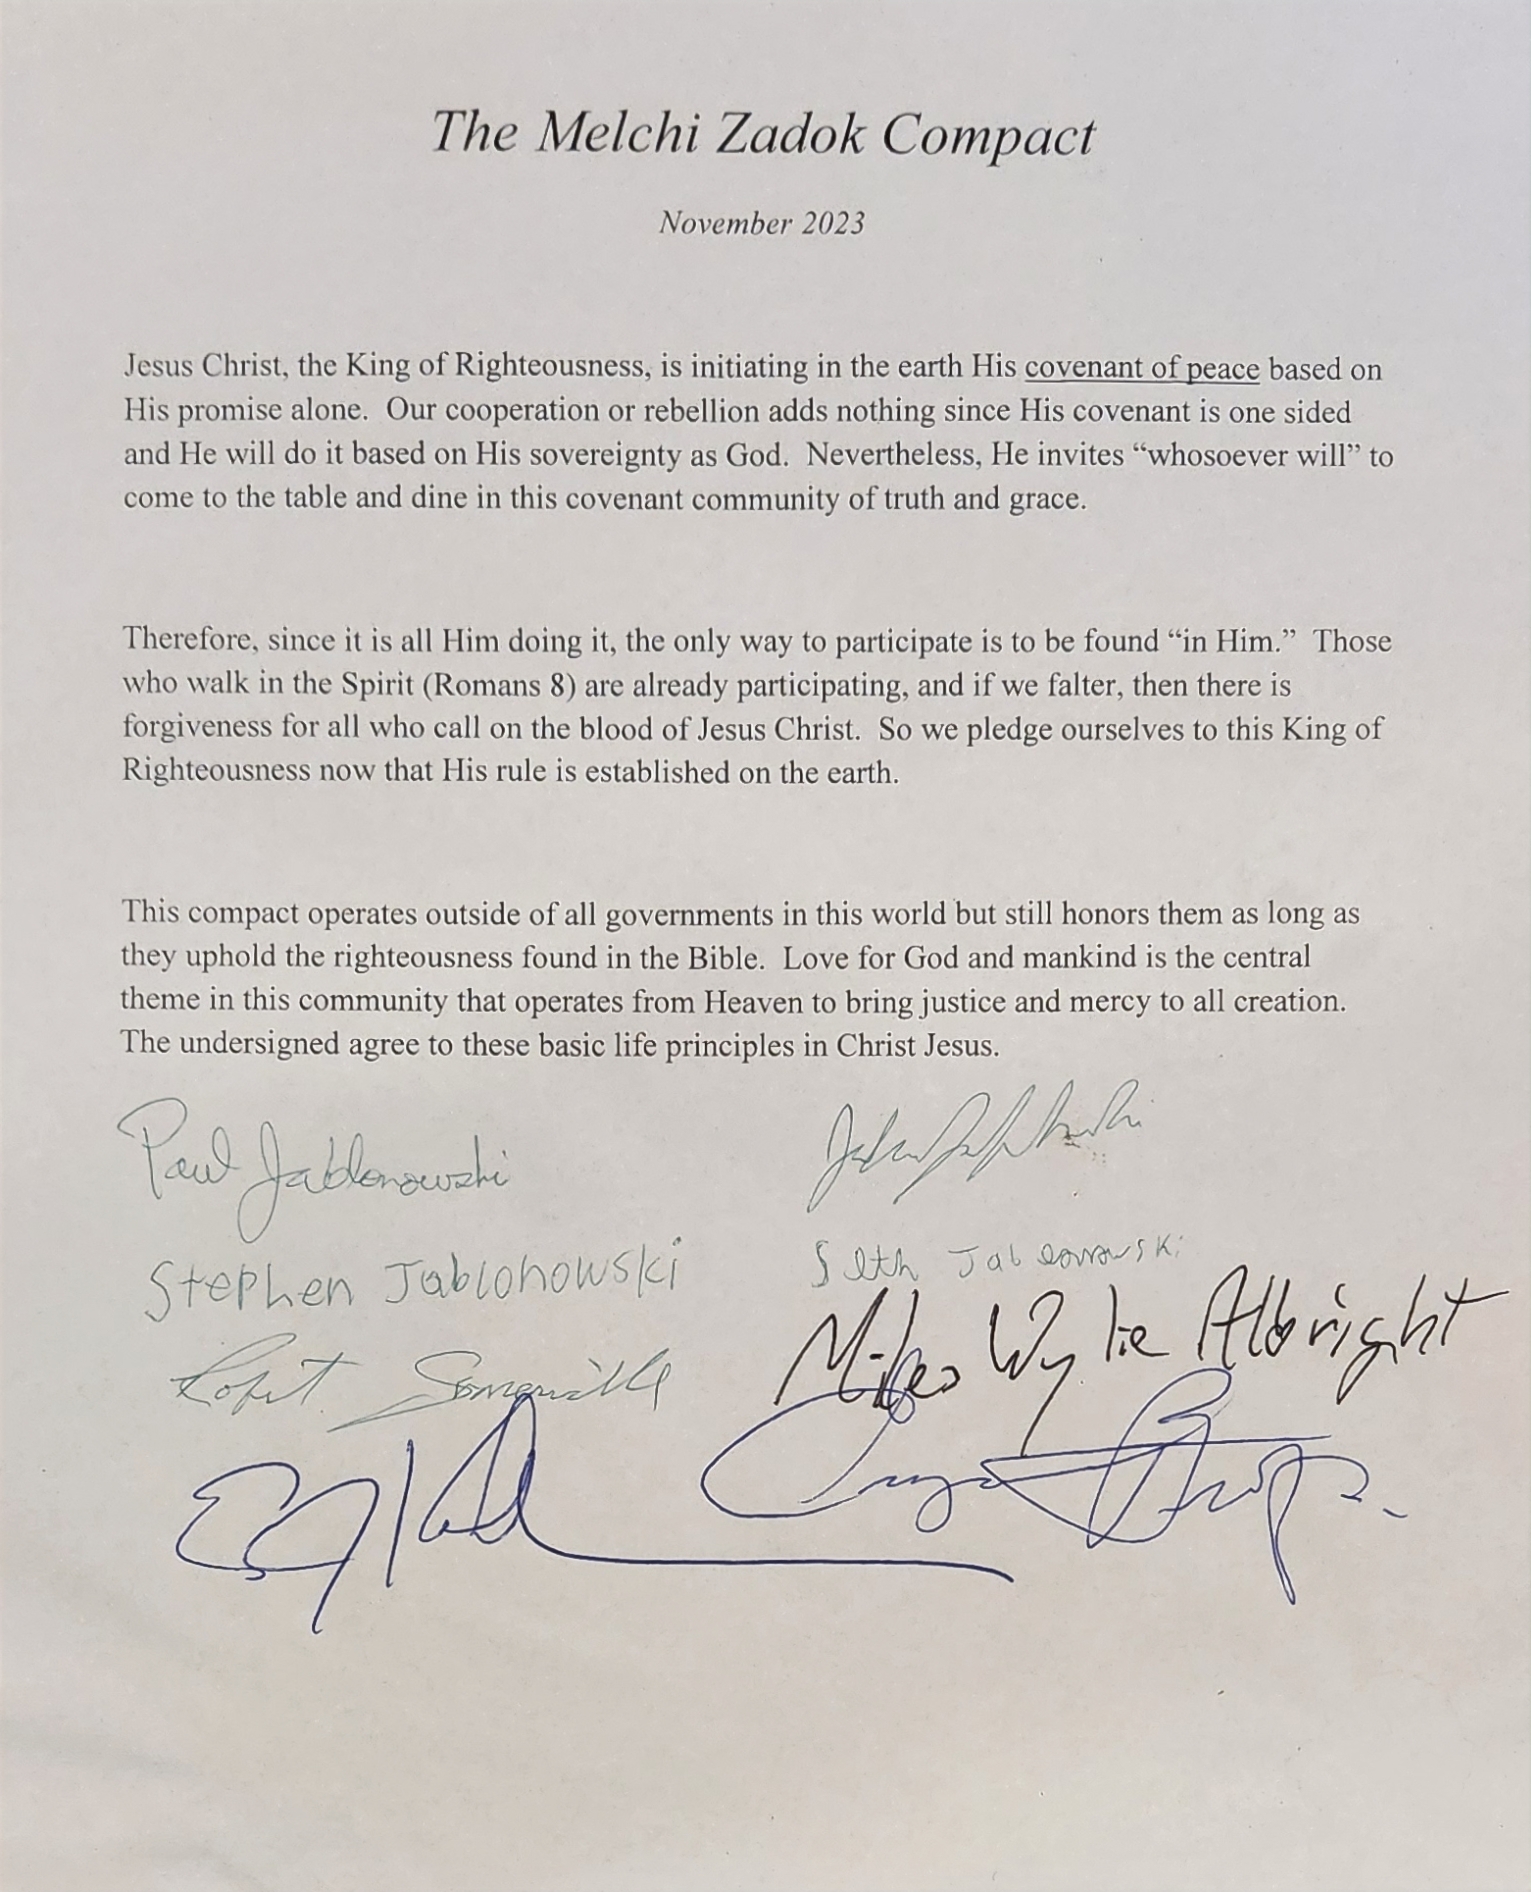 The Melchi Zadok Compact
November 2023
Jesus Christ, the King of Righteousness, is initiating in the earth His covenant of peace based on
His promise alone.  Our cooperation or rebellion adds nothing since His covenant is one sided
and He will do it based on His sovereignty as God.  Nevertheless, He invites “whosoever will” to
come to the table and dine in this covenant community of truth and grace.
Therefore, since it is all Him doing it, the only way to participate is to be found “in Him.”  Those
who walk in the Spirit (Romans 8) are already participating, and if we falter, then there is
forgiveness for all who call on the blood of Jesus Christ.  So we pledge ourselves to this King of
Righteousness now that His rule is established on the earth.
This compact operates outside of all governments in this world but still honors them as long as
they uphold the righteousness found in the Bible.  Love for God and mankind is the central
theme in this community that operates from Heaven to bring justice and mercy to all creation.
The undersigned agree to these basic life principles in Christ Jesus.
Paul Jablonowski
Stephen Jablonowski
Seth Jablonowski
Robert
Wylie Albright